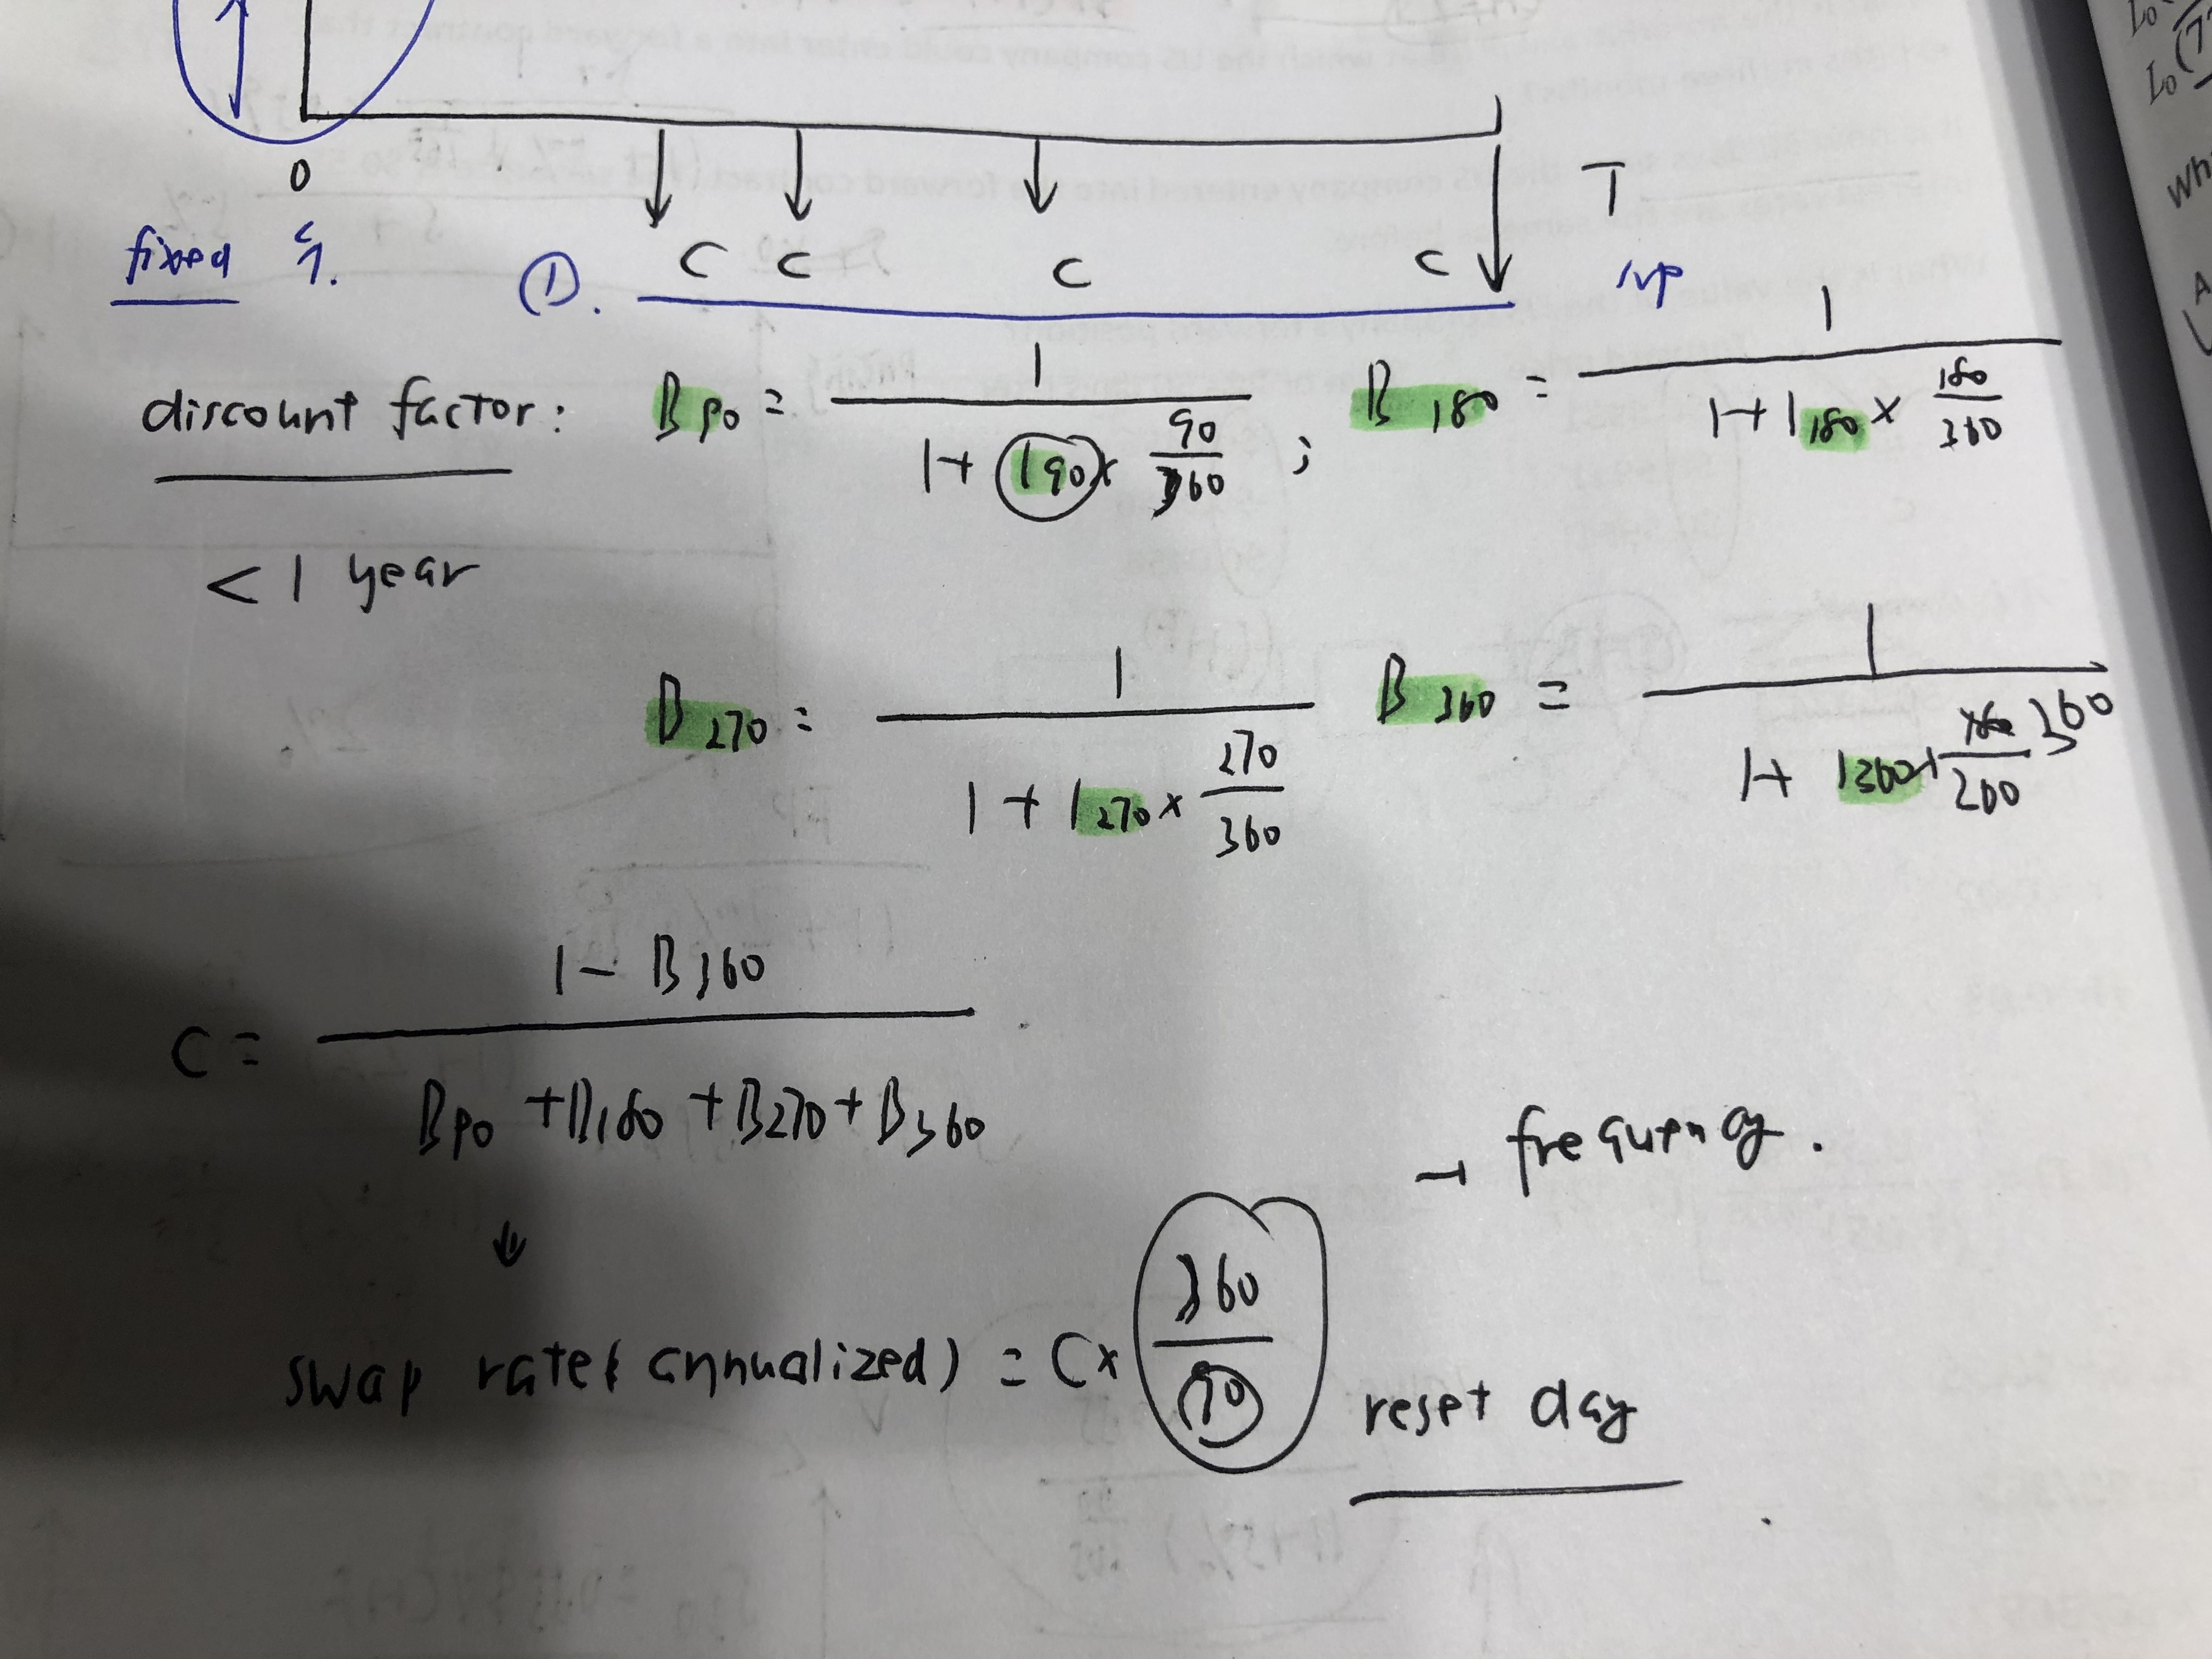 0 T
C C C C
fixed ①. NP
discount factor: B90 = 1 / (1 + L90 × 90/360) ; B180 = 1 / (1 + L180 × 180/360)
< 1 year
B270 = 1 / (1 + L270 × 270/360) B360 = 1 / (1 + L360 × 360/360)
C = (1 - B360) / (B90 + B180 + B270 + B360)
→ frequency.
↓
swap rate (annualized) = C × 360/90
reset day